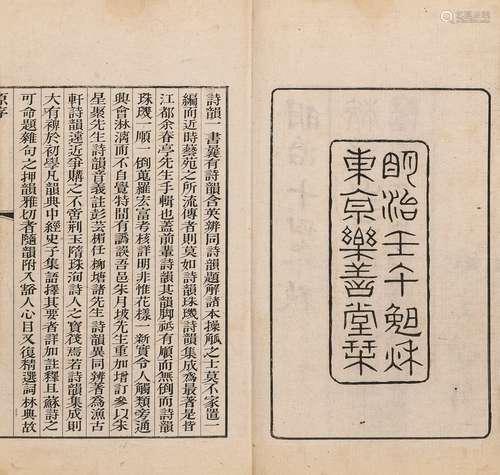 明治壬午勉秌
東京樂善堂栞
詩韻一書曩有詩韻含英辨同詩韻題解諸本操觚之士莫不家置一
編而近時藝苑之所流傳者則莫如詩韻珠璣詩韻集成爲最著是皆
江都余春亭先生手輯也蓋前輩詩韻其韻脚祇有順而無倒而詩韻
珠璣一順一倒蒐羅宏富考核詳明非惟花樣一新實令人觸類旁通
興會淋漓而不自覺特間有譌誤吾邑朱月坡先生重加增訂參以朱
星聚先生詩韻音義註彭芸楣任柳塘諸先生詩韻異同辨著爲漁古
軒詩韻遠近爭購之不啻荆玉隋珠洵詩人之寶筏焉若詩韻集成則
大有裨於初學凡韻典中經史子集語擇其要者詳加註釋且蘇詩之
可命題雜句之押韻雅切者隨韻附入豁人心目又復精選詞林典故
原序